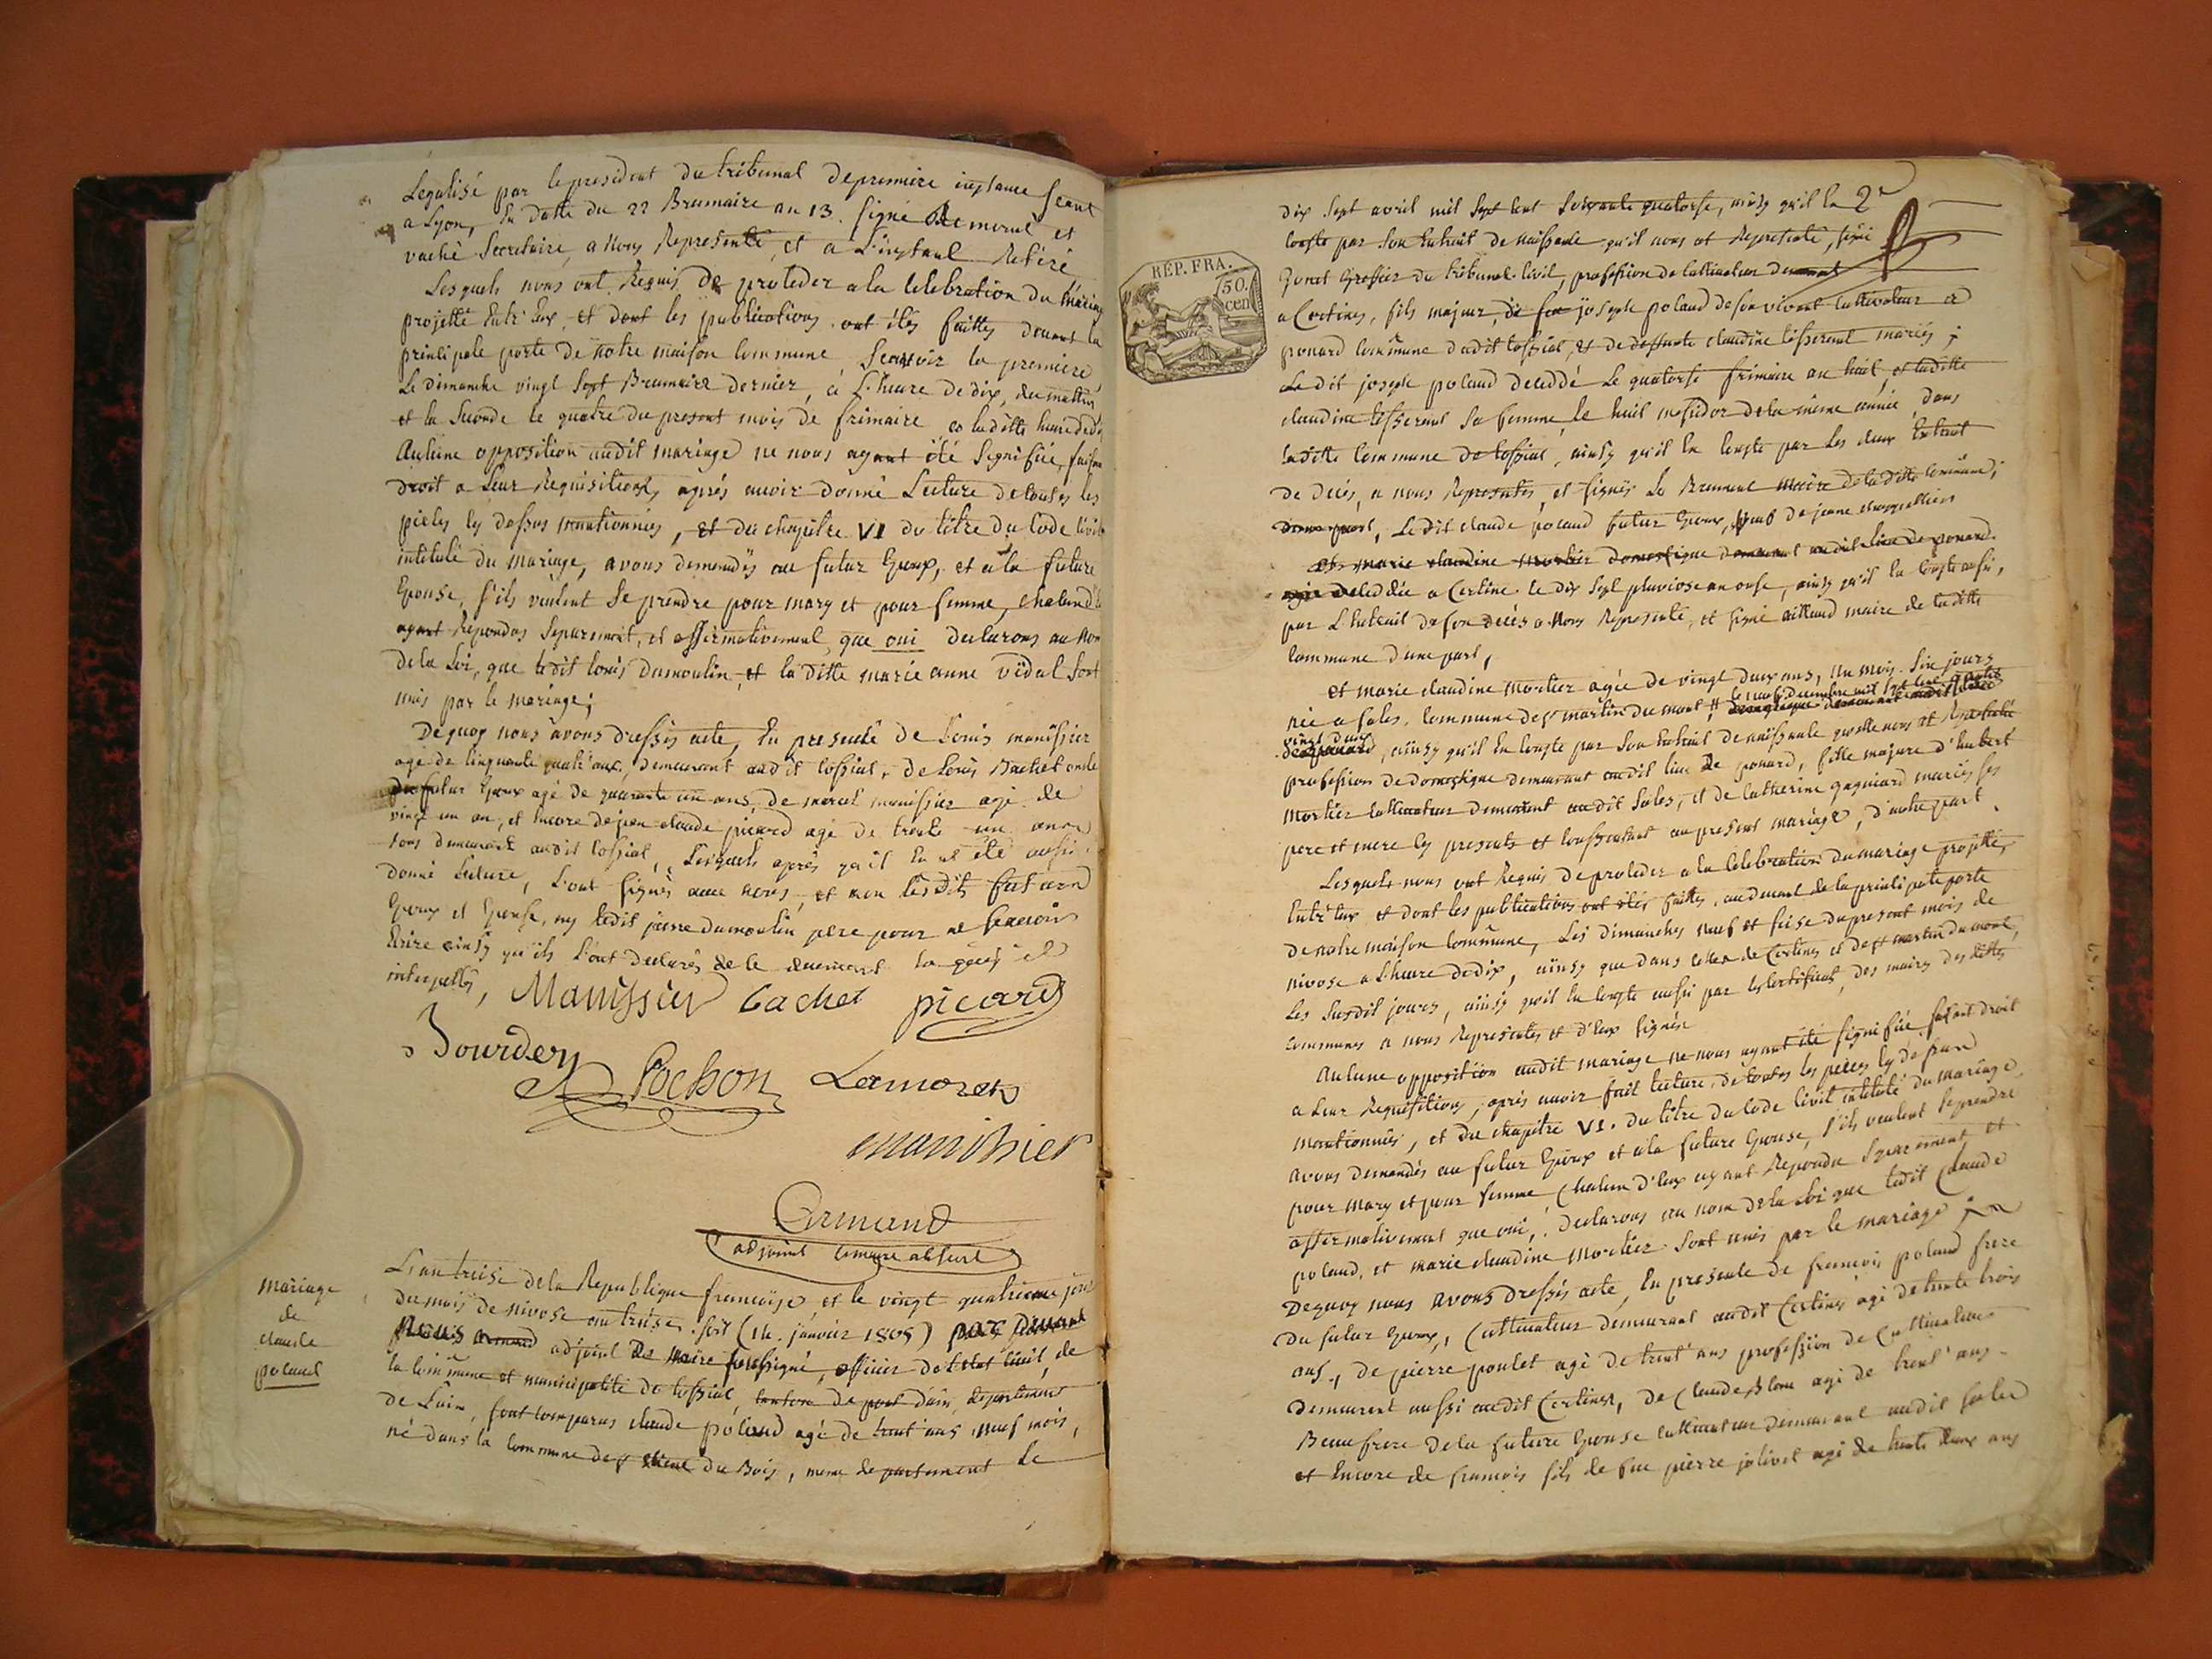 Legalisé par le president du tribunal de premiere instance seant
a Lyon, en datte du 22 Brumaire an 13. signé et
vaché Secretaire, a nous Representé, et a L'instant Retiré
Lesquels nous ont Requis De proceder a la celebration du Mariage
projetté entr'eux, et dont les publications ont étés faittes devant la
principale porte de notre maison commune Scavoir la premiere
Le dimanche vingt sept Brumaire dernier, à L'heure de dix, du mattin
et la seconde le quatre du present mois de frimaire a laditte heure de dix
Aucune opposition audit mariage ne nous ayant été signifiée, faisant
droit a Leur Requisitions, aprés avoir donné Lecture de toutes les
pieces cy dessus mentionnées, et du chapitre VI du titre du Code Civil
intitulé du Mariage, avons demandés au futur Epoux, et à la future
Epouse, s'ils veulent Se prendre pour mary et pour femme, chacund'eux
ayant Repondus Separement, et affirmativement que oui declarons au Nom
de la Loi, que ledit Louis Dumoulin, et la ditte marie anne vidal sont
unis par le mariage;
De quoy nous avons dressés acte, en presence de Louis manissier
agé de cinquante quatr'ans, demeurant audit tossiat, de Louis Bachet oncle
du futur Epoux agé de quarante un ans, de marcel manissier agé de
vingt un an, et encore de jean claude picard agé de trente un ans
tous demeurant audit tossiat, Lesquels aprés qu'il en a été aussi
donné Lecture, L'ont signés avec nous, et non lesdits futurs
Epoux et Epouse, ny ledit pierre dumoulin pere pour ne Scavoir
Ecrire ainsy qu'ils L'ont declarés de ce duement
interpellés, Manissier bachet picard
Bourdon
Pochon Lamoret
manihier
Armand
adjoint le maire absent
mariage
de
claude
poland
L'an treise de la Republique francaise et le vingt quatrieme jour
du mois de nivose an treise. soit (14. janvier 1805) par devant
Nous Armand adjoint De Maire soussigné, officier de L'etat Civil, de
la Commune et municipalité de tossiat, canton de pont dain, departement
de L'ain, sont comparus claude poland agé de trent'ans neuf mois,
né dans la Commune de st du Bois, meme departement le
dix sept avril mil sept cent soixante quatorse, ainsy qu'il en 2e
conste par son Extrait de naissance qu'il nous at Representé, signé
Greffier du tribunal Civil, profession de cultivateur demeurant
a Certines, fils majeur, de feu joseph poland de son vivant cultivateur a
ponard commune dudit tossiat, et de deffunte claudine tisserand mariés;
Le dit joseph poland deceddé Le quatorse frimaire an huit, et laditte
claudine tisserand sa femme, le huit messidor de la même année, dans
laditte Commune de tossiat, ainsy qu'il en conste par Les deux Extrait
de deces, a nous Representés, et signés Le Brument maire de laditte commune;
D'une part, Le dit claude poland futur Epoux, veuf de jeane
et marie claudine mortier domestique demeurant audit lieu de ponard
agée deceddée a Certine le dix sept pluviose an onse, ainsy qu'il en conste aussi,
par L'Extrait de son decés a Nous Representé, et signé maire de laditte
commune d'une part,
et marie claudine Mortier agée de vingt deux ans, un mois. six jours
née a sales, commune de st martin du mont,
ainsy qu'il en conste par son Extrait de naissance quelle nous at Representé
profession de Domestique demeurant audit lieu de ponard, fille majeure d'
mortier cultivateur demeurant audit Sales, et de Catherine mariés ses
pere et mere cy presents et consentant au present mariage, d'autre part.
Lesquels nous ont Requis De proceder a la Celebration du mariage projetté,
Entr'eux et dont les publications ont étés faittes, audevant de la principale porte
de notre maison commune, Les Dimanches neuf et seise du present mois de
nivose a L'heure de dix, ainsy que dans celles de Certines et de st martin du mont,
Les susdit jours, ainsy qu'il en conste aussi par les certificat, des maires des dittes
communes a nous Representés et d'eux signés
Aucune opposition audit mariage ne nous ayant été signifiée, faisant droit
a Leur Requisitions, aprés avoir fait lecture, de toutes les pieces cy dessus
mentionnées, et du chapitre VI. du titre du Code Civil intitulé du Mariage
avons demandés au futur Epoux et a la future Epouse, s'ils veulent se prendre
pour Mary et pour femme Chacun d'eux ayant Repondu Separement, et
affirmativement que oui, declarons au nom de la Loi que ledit Claude
poland, et marie claudine Mortier sont unis par le mariage
Dequoy nous avons dressés acte, en presence de francois poland frere
du futur Epoux, Cultivateur demeurant audit Certines agé de trente trois
ans, de pierre poulet agé de trent'ans profession de Cultivateur
Demeurent aussi audit Certines, De Claude agé de trent'ans
Beaufrere de la future Epouse cultivateur demeurant audit sales
et Encore de francois fils de feu pierre jolivet agé de trente deux ans
RÉP. FRA.
50.
cen